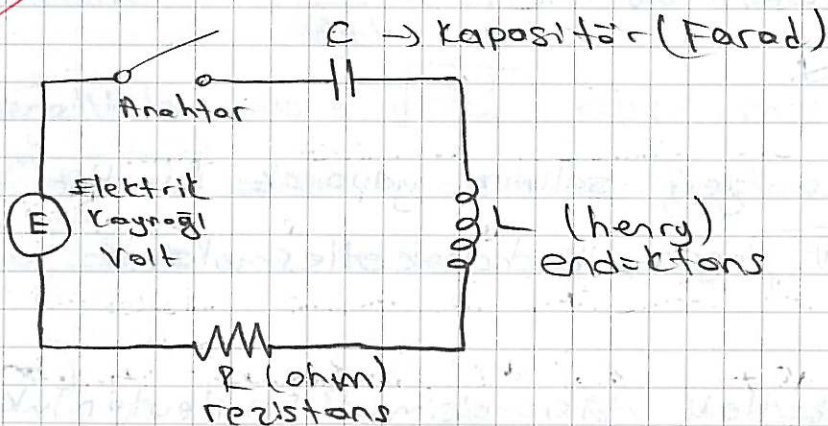 C → Kapasitör (Farad)
Anahtar
Elektrik
Kaynağı
Volt
E
L (henry)
endüktans
R (ohm)
rezistans